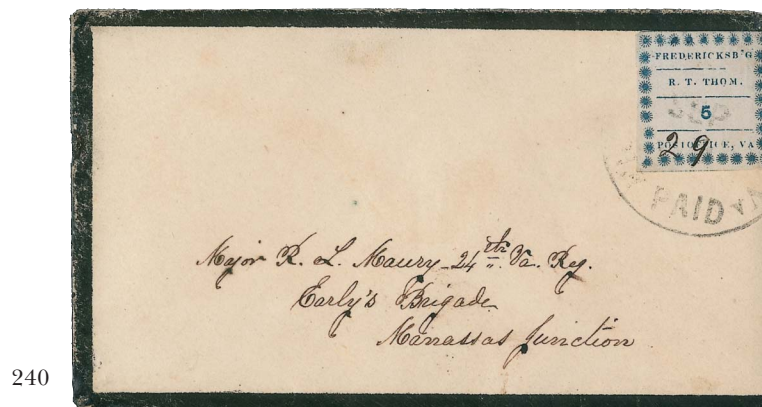 FREDERICKSB'G
R. T. THOM.
SEP
5
29
POSTOFFICE, VA
PAID
Major R. L. Maury 24th Va. Reg.
Early's Brigade
Manassas Junction
240